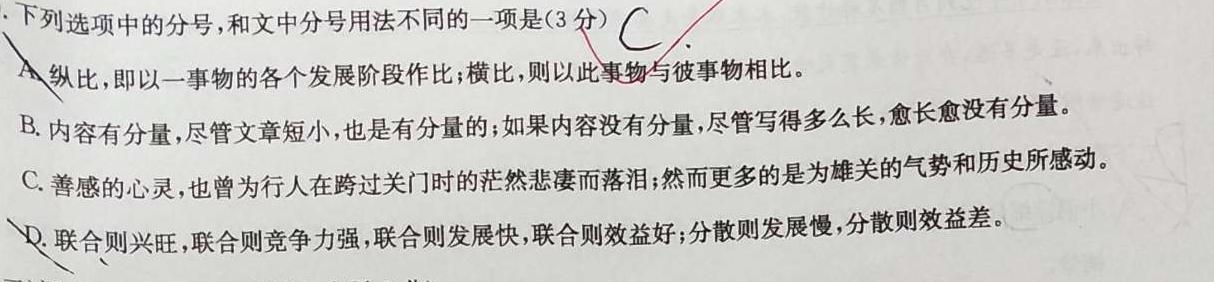 .下列选项中的分号,和文中分号用法不同的一项是(3分) C.
A.纵比,即以一事物的各个发展阶段作比;横比,则以此事物与彼事物相比。
B.内容有分量,尽管文章短小,也是有分量的;如果内容没有分量,尽管写得多么长,愈长愈没有分量。
C.善感的心灵,也曾为行人在跨过关门时的茫然悲凄而落泪;然而更多的是为雄关的气势和历史所感动。
D.联合则兴旺,联合则竞争力强,联合则发展快,联合则效益好;分散则发展慢,分散则效益差。